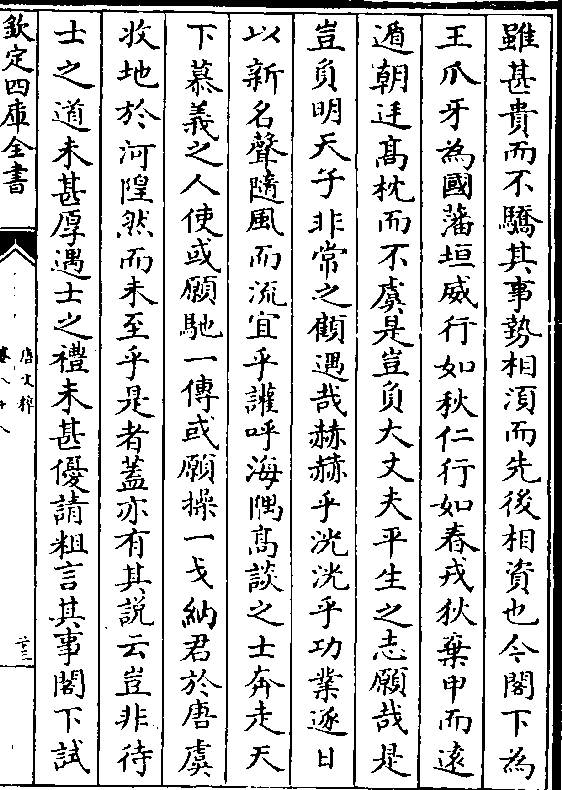 雖甚貴而不驕其事勢相湏而先後相資也今閣下為
王爪牙為國藩垣威行如秋仁行如春戎狄棄甲而逺
遁朝廷髙枕而不虞是豈負大丈夫平生之志願哉是
豈負明天子非常之顧遇哉赫赫乎洸洸乎功業逐日
以新名聲隨風而流宜乎讙呼海隅髙談之士奔走天
下慕義之人使或願馳一傳或願操一戈納君於唐虞
收地於河隍然而未至乎是者蓋亦有其説云豈非待
士之道未甚厚遇士之禮未甚優請粗言其事閣下試
欽定四庫全書
唐文粹
卷八十八